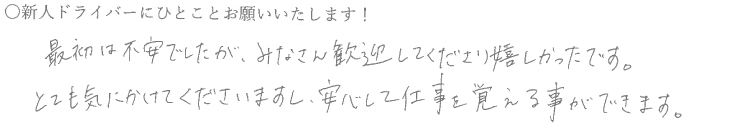 ○新人ドライバーにひとことお願いいたします！
最初は不安でしたが、みなさん歓迎してくださり嬉しかったです。
とても気にかけてくださいますし、安心して仕事を覚える事ができます。